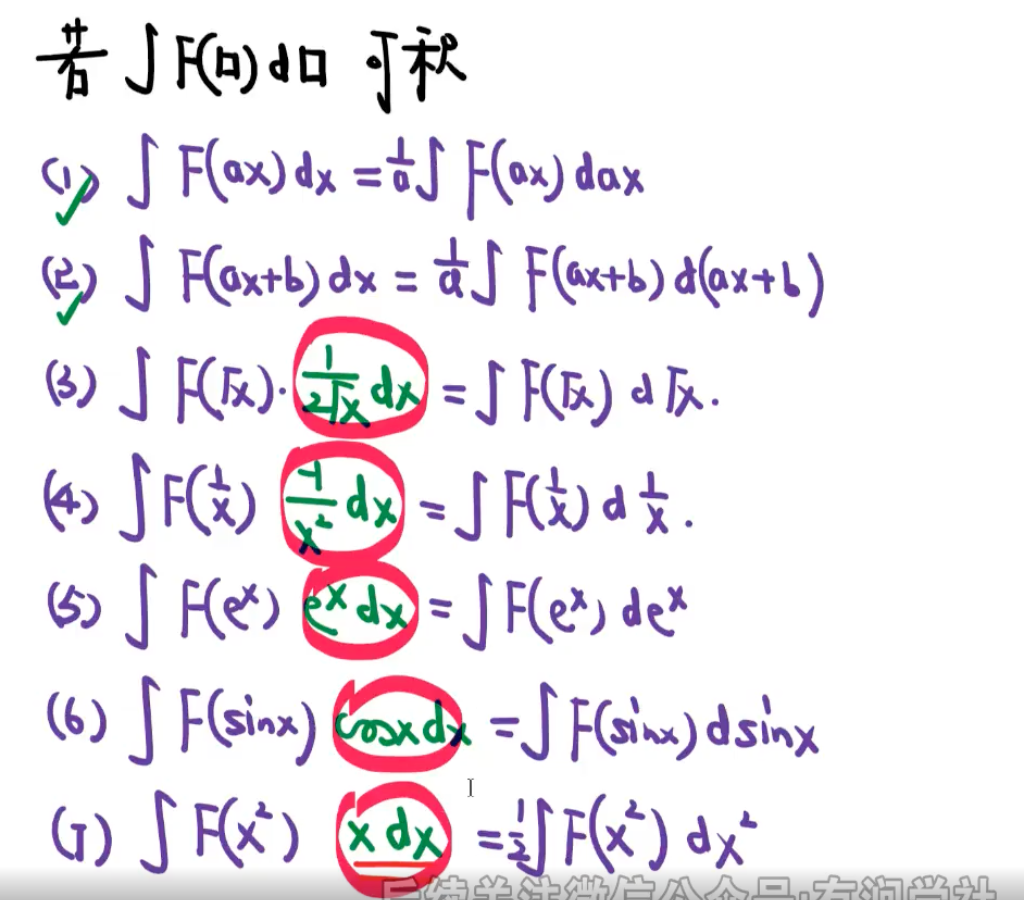 若 ∫ F(口) d口 可积
(1) ∫ F(ax) dx = 1/a ∫ F(ax) dax
(2) ∫ F(ax+b) dx = 1/a ∫ F(ax+b) d(ax+b)
(3) ∫ F(√x) · 1/(2√x) dx = ∫ F(√x) d√x.
(4) ∫ F(1/x) -1/x² dx = ∫ F(1/x) d 1/x.
(5) ∫ F(eˣ) eˣ dx = ∫ F(eˣ) deˣ
(6) ∫ F(sinx) cosx dx = ∫ F(sinx) dsinx
(7) ∫ F(x²) x dx = 1/2 ∫ F(x²) dx²
后续关注微信公众号:有润学社